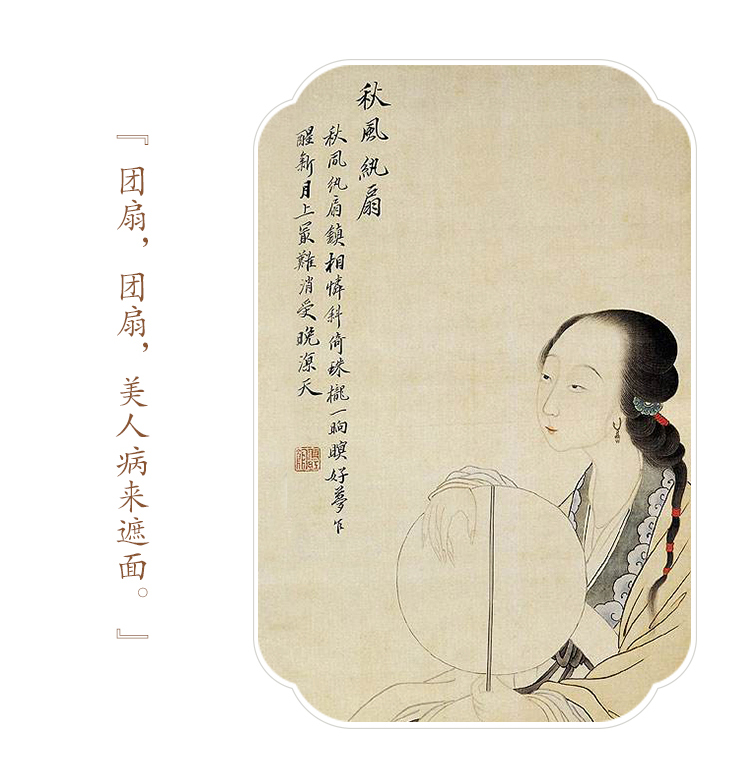 『团扇，团扇，美人病来遮面。』
秋風紈扇
秋風紈扇鎮相憐斜倚珠櫳一晌瞑好夢乍
醒新月上最難消受晚涼天